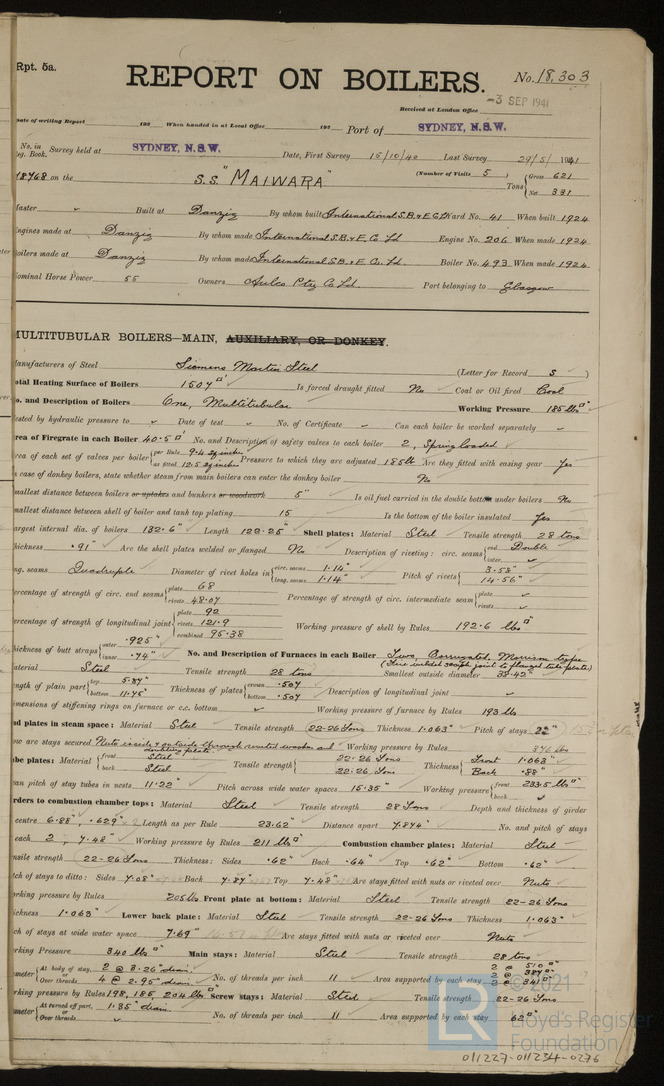 Rpt. 5a.
REPORT ON BOILERS.
No. 18,303
Received at London Office -3 SEP 1941
ate of writing Report 192 When handed in at Local Office 192 Port of SYDNEY, N.S.W.
No. in Survey held at SYDNEY, N.S.W. Date, First Survey 15/10/40 Last Survey 29/5/ 1941
g. Book.
18768 on the S.S. "MAIWARA" (Number of Visits 5) Tons { Gross 621
Net 331
aster Built at Danzig By whom built International S.B. & E Co Ld Yard No. 41 When built 1924
ngines made at Danzig By whom made International S.B. & E. Co. Ld Engine No. 206 When made 1924
oilers made at Danzig By whom made International S.B. & E. Co. Ld. Boiler No. 493 When made 1924
ominal Horse Power 55 Owners Aulco Pty Co Ld. Port belonging to Glasgow
MULTITUBULAR BOILERS—MAIN, AUXILIARY, OR DONKEY.
anufacturers of Steel Siemens Martin Steel (Letter for Record S)
otal Heating Surface of Boilers 1507 □' Is forced draught fitted No Coal or Oil fired Coal
o. and Description of Boilers One, Multitubular Working Pressure 185 lbs □"
ested by hydraulic pressure to Date of test No. of Certificate Can each boiler be worked separately
rea of Firegrate in each Boiler 40.5 □' No. and Description of safety valves to each boiler 2, Spring loaded
rea of each set of valves per boiler { per Rule 9.4 sq inches
as fitted 12.5 sq inches Pressure to which they are adjusted 185 lb Are they fitted with easing gear Yes
n case of donkey boilers, state whether steam from main boilers can enter the donkey boiler No
mallest distance between boilers or uptakes and bunkers or woodwork 5" Is oil fuel carried in the double bottom under boilers No
mallest distance between shell of boiler and tank top plating 15 Is the bottom of the boiler insulated Yes
argest internal dia. of boilers 132.6" Length 120.25" Shell plates: Material Steel Tensile strength 28 tons
hickness .91" Are the shell plates welded or flanged No Description of riveting: circ. seams { end Double
inter.
ng. seams Quadruple Diameter of rivet holes in { circ. seams 1.14"
long. seams 1.14" Pitch of rivets { 3.58"
14.56"
ercentage of strength of circ. end seams { plate 68
rivets 48.07 Percentage of strength of circ. intermediate seam { plate
rivets
ercentage of strength of longitudinal joint { plate 92
rivets 121.9
combined 95.38 Working pressure of shell by Rules 192.6 lbs □"
hickness of butt straps { outer .925"
inner .74" No. and Description of Furnaces in each Boiler Two, Corrugated, Morrison type
aterial Steel Tensile strength 28 tons Smallest outside diameter 38.42"
ength of plain part { top 5.87"
bottom 11.75" Thickness of plates { crown .507
bottom .507 Description of longitudinal joint
imensions of stiffening rings on furnace or c.c. bottom Working pressure of furnace by Rules 193 lbs
nd plates in steam space: Material Steel Tensile strength 22-26 Tons Thickness 1.063" Pitch of stays 22"
ow are stays secured Nuts inside & outside through Working pressure by Rules 376 lbs
ube plates: Material { front Steel
back Steel Tensile strength { 22.26 Tons
22.26 Tons Thickness { Front 1.063"
Back .88"
an pitch of stay tubes in nests 11.22" Pitch across wide water spaces 15.35" Working pressure { front 233.5 lbs □"
back
rders to combustion chamber tops: Material Steel Tensile strength 28 Tons Depth and thickness of girder
centre 6.88", .629" Length as per Rule 23.62" Distance apart 7.874" No. and pitch of stays
each 2, 7.48" Working pressure by Rules 211 lbs □" Combustion chamber plates: Material Steel
ensile strength 22-26 Tons Thickness: Sides .62" Back .64" Top .62" Bottom .62"
tch of stays to ditto: Sides 7.08" Back 7.87" Top 7.48" Are stays fitted with nuts or riveted over Nuts
orking pressure by Rules 205 lbs Front plate at bottom: Material Steel Tensile strength 22-26 Tons
ickness 1.063" Lower back plate: Material Steel Tensile strength 22-26 Tons Thickness 1.063"
ch of stays at wide water space 7.69" Are stays fitted with nuts or riveted over Nuts
rking Pressure 340 lbs □" Main stays: Material Steel Tensile strength 28 tons
meter { At body of stay, 2 @ 3.26" diam.
or
Over threads 4 @ 2.95" diam. No. of threads per inch 11 Area supported by each stay
rking pressure by Rules 198, 185, 204 lbs □" Screw stays: Material Steel Tensile strength 22-26 Tons
meter { At turned off part, 1.35" diam.
or
Over threads No. of threads per inch 11 Area supported by each stay 62 □"
© 2021
Lloyd's Register
Foundation
011227-011234-0276